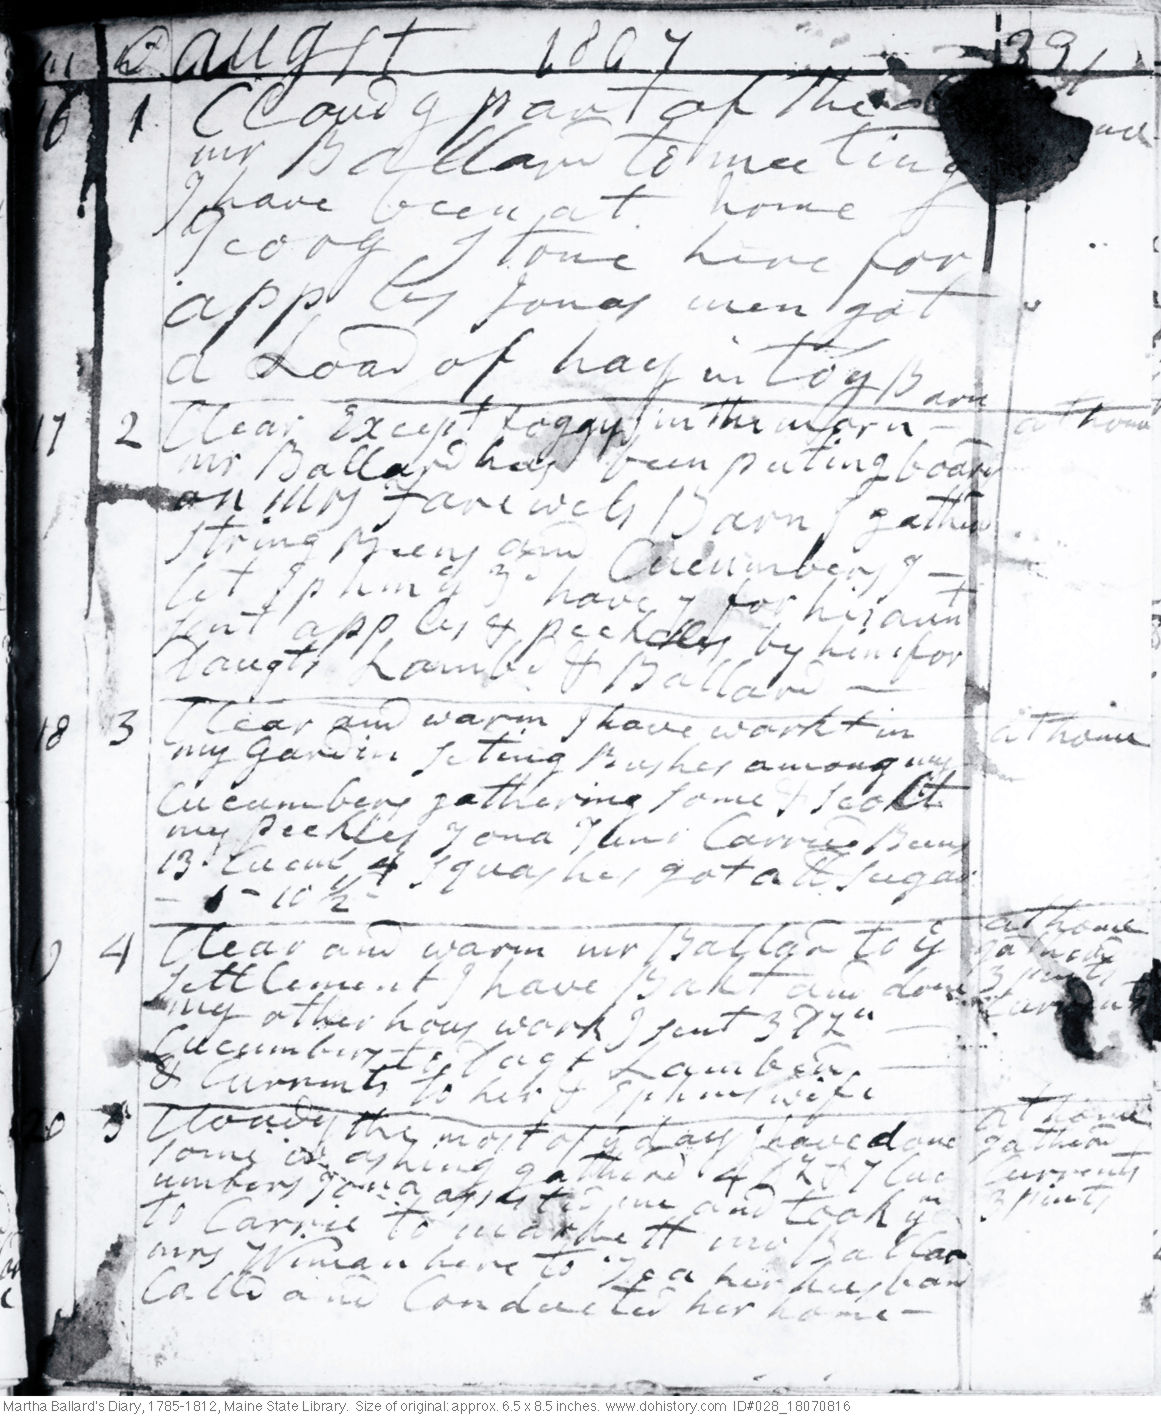 m D august 1807 391
16 1 Cloudy part of the
mr Ballard to meeting
I have been at home
Goorg Stone here for
apples Jonas men got
a Load of hay into ye Barn
17 2 Clear Except foggy in the morn - at home
mr Ballard has been puting boards
on Mrs Farewels Barn I gatherd
string Beens and Cucumbers I -
let Ephm ye 3d have 7 for his aunt
sent apples & peekles by him for
Daugts Lambd & Ballard -
18 3 Clear and warm I have workt in at home
my Gardin seting Bushes among my
Cucumbers gathering some & scolt
my peekles Jona Junr Carried Beens
13 Cucumrs 4 squashes got a lb sugar
- 1 - 10 1/2 -
19 4 Clear and warm mr Ballard to ye at home
settlement I have Bakt and done gatherd 3 pints
my other hous work I sent 3 Currants
Cucumbers to Dagt Lambd -
& Currents to her & Ephms wife
20 5 Cloudy the most of ye day I have done at home
some washing gatherd 4 Cuc gatherd
umbers Jona assisted me and took ym Currents
to Carrie to markett mr Ballard 3 pints
mrs Wiman here to Tea her husband
Calld and Conducted her home -
Martha Ballard's Diary, 1785-1812, Maine State Library. Size of original: approx. 6.5 x 8.5 inches. www.dohistory.com ID#028_18070816